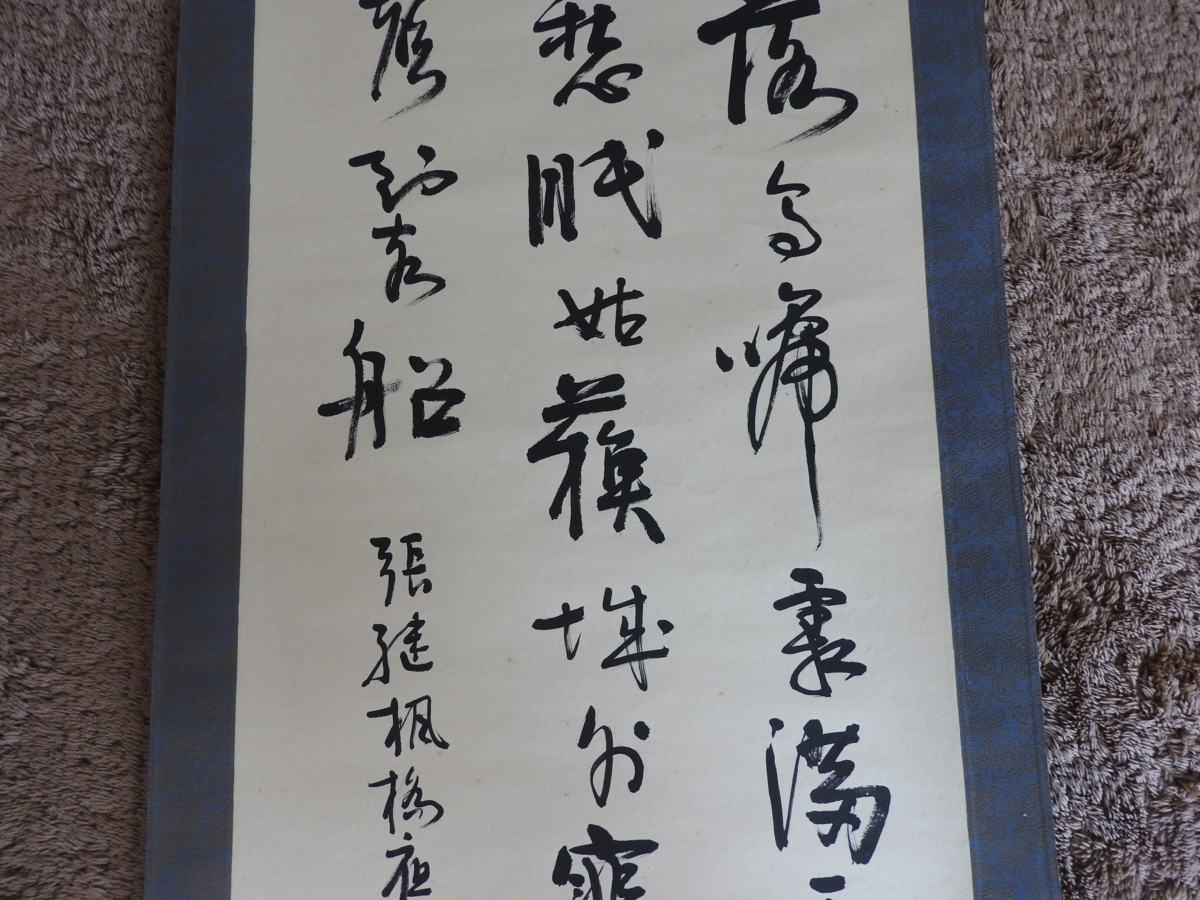 落烏啼霜滿
愁眠姑蘓城外寒
聲到客船 張繼楓橋夜